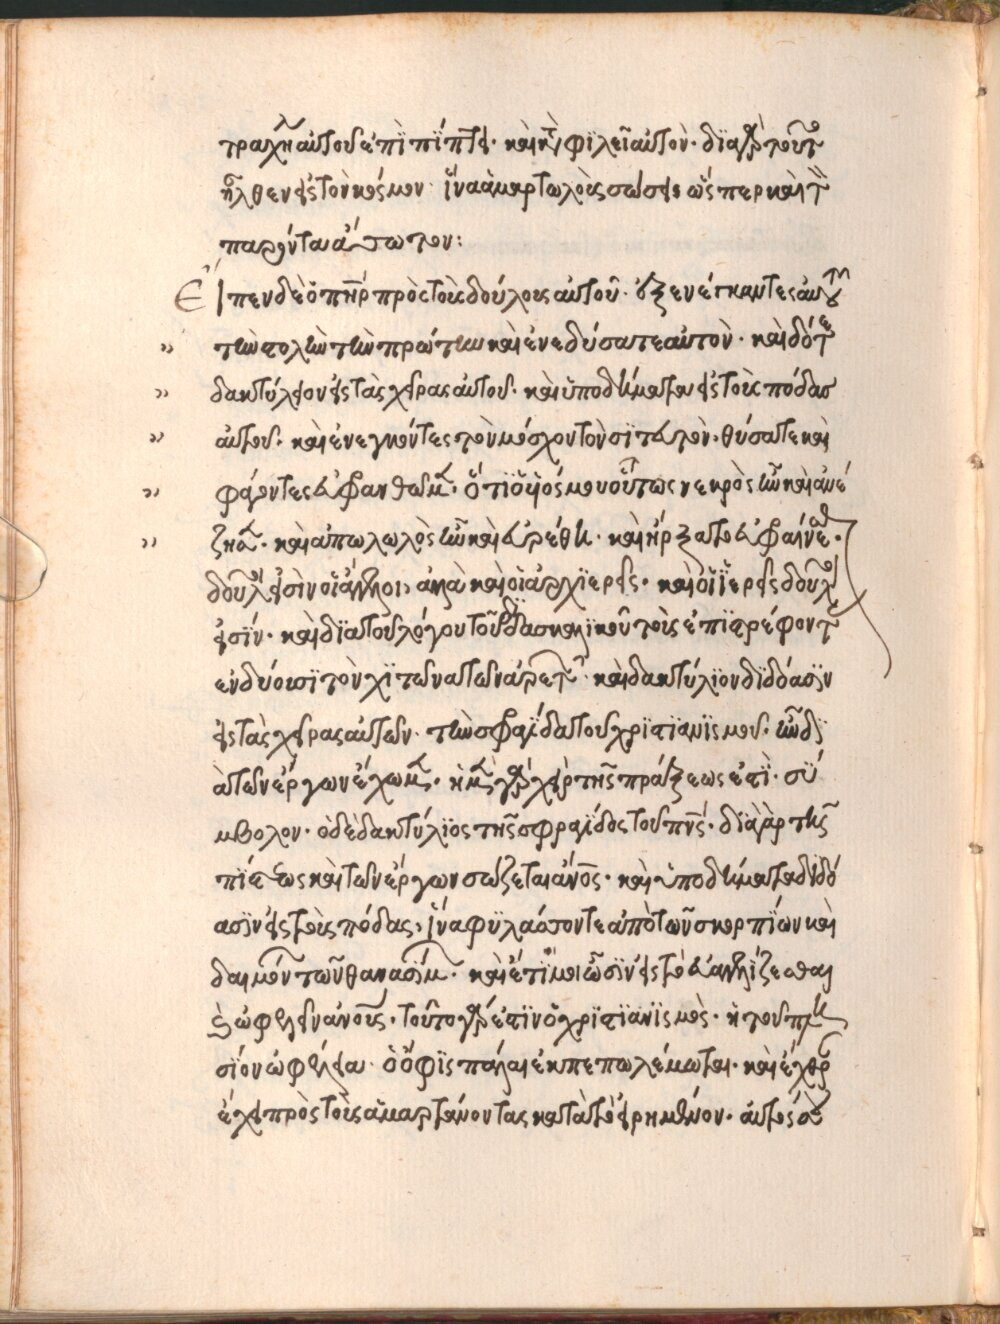 τραχήλ αὐτοῦ ἐπιπίπτει· καὶ καταφιλεῖ αὐτὸν· διὰ γὰρ τοῦτο
ἦλθεν εἰς τὸν κόσμον· ἵνα ἁμαρτωλοὺς σώσει· ὥσπερ καὶ τὸν
παρόντα ἄσωτον:
Εἶπεν δὲ ὁ πηρ πρὸς τοὺς δούλους αὐτοῦ· ἐξενέγκαντες αὐτῷ
τὴν στολὴν τὴν πρώτην καὶ ἐνεδύσατε αὐτὸν· καὶ δότε
δακτύλιον εἰς τὰς χεῖρας αὐτοῦ· καὶ ὑποδήματα εἰς τοὺς πόδας
αὐτοῦ· καὶ ἐνεγκόντες τὸν μόσχον τὸν σιτευτὸν· θύσατε καὶ
φαγόντες εὐφρανθῶμεν· ὅτι ὁ υἱός μου οὗτος νεκρὸς ἦν καὶ ἀνέ
ζησεν· καὶ ἀπωλωλὸς ἦν καὶ εὑρέθη· καὶ ἤρξαντο εὐφραίνεσθαι·
δοῦλοι εἰσὶν οἱ ἄγγελοι, ἀλλὰ καὶ οἱ ἀρχιερεῖς· καὶ οἱ ἱερεῖς δοῦλοι
εἰσίν· καὶ διὰ τοῦ λόγου τοῦ διδασκαλικοῦ τοὺς ἐπιστρέφοντας
ἐνδύουσι τὸν χιτῶνα τῶν ἀρετῶν· καὶ δακτύλιον διδόασιν
εἰς τὰς χεῖρας αὐτῶν· τὴν σφραγίδα τοῦ χριστιανισμοῦ· ἣν διὰ
τῶν ἔργων ἔχωμεν· ἡ μὲν γὰρ χεὶρ τῆς πράξεως ἐστὶ· σύ
μβολον· ὁ δὲ δακτύλιος τῆς σφραγίδος τοῦ πνς· διὰ γὰρ τῆς
πίστεως καὶ τῶν ἔργων σώζεται ἄνος· καὶ ὑποδήματα διδό
ασιν εἰς τοὺς πόδας, ἵνα φυλάσσονται ἀπὸ τῶν σκορπίων καὶ
δαιμόνων τῶν θανασίμων· καὶ ἕτοιμοι ὦσιν εἰς τὸ εὐαγγελίζεσθαι
καὶ ὠφελεῖν ἀνους· τοῦτο γάρ ἐστιν ὁ χριστιανισμὸς· ἡ τοῦ πλη
σίον ὠφέλεια· ὁ ὄφις πάλαι ἐκπεπολέμωται· καὶ ἔχθραν
ἔχει πρὸς τοὺς ἁμαρτάνοντας κατὰ τὸ εἰρημένον· αὐτός σου